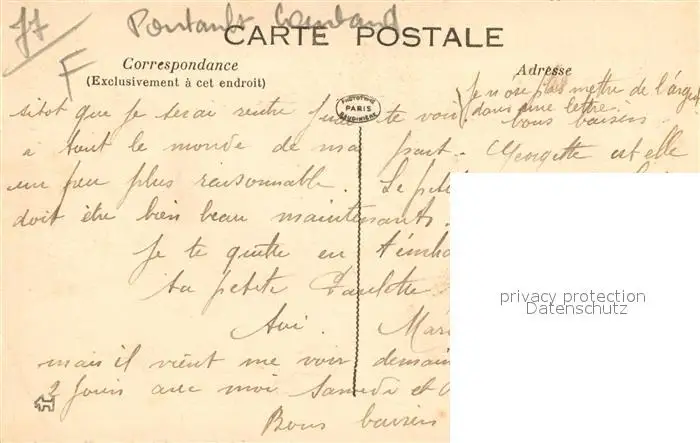 77 Pontault Combault
F
CARTE POSTALE
Correspondance
(Exclusivement à cet endroit)
Adresse
PHOTOTYPIE
PARIS
BAUDINIÈRE
Je n ose plus mettre de l'argent
dans une lettre.
bons baisers
sitot que je serai rentre j'irai te voir
a tout le monde de ma part. Georgette est elle
un peu plus raisonnable. Le peti
doit être bien beau maintenant.
Je te quitte en t'emb
ta petite Paulette
Mar
mais il vient me voir demain
2 Jours avec moi Samedi et
Bons baisers
privacy protection
Datenschutz